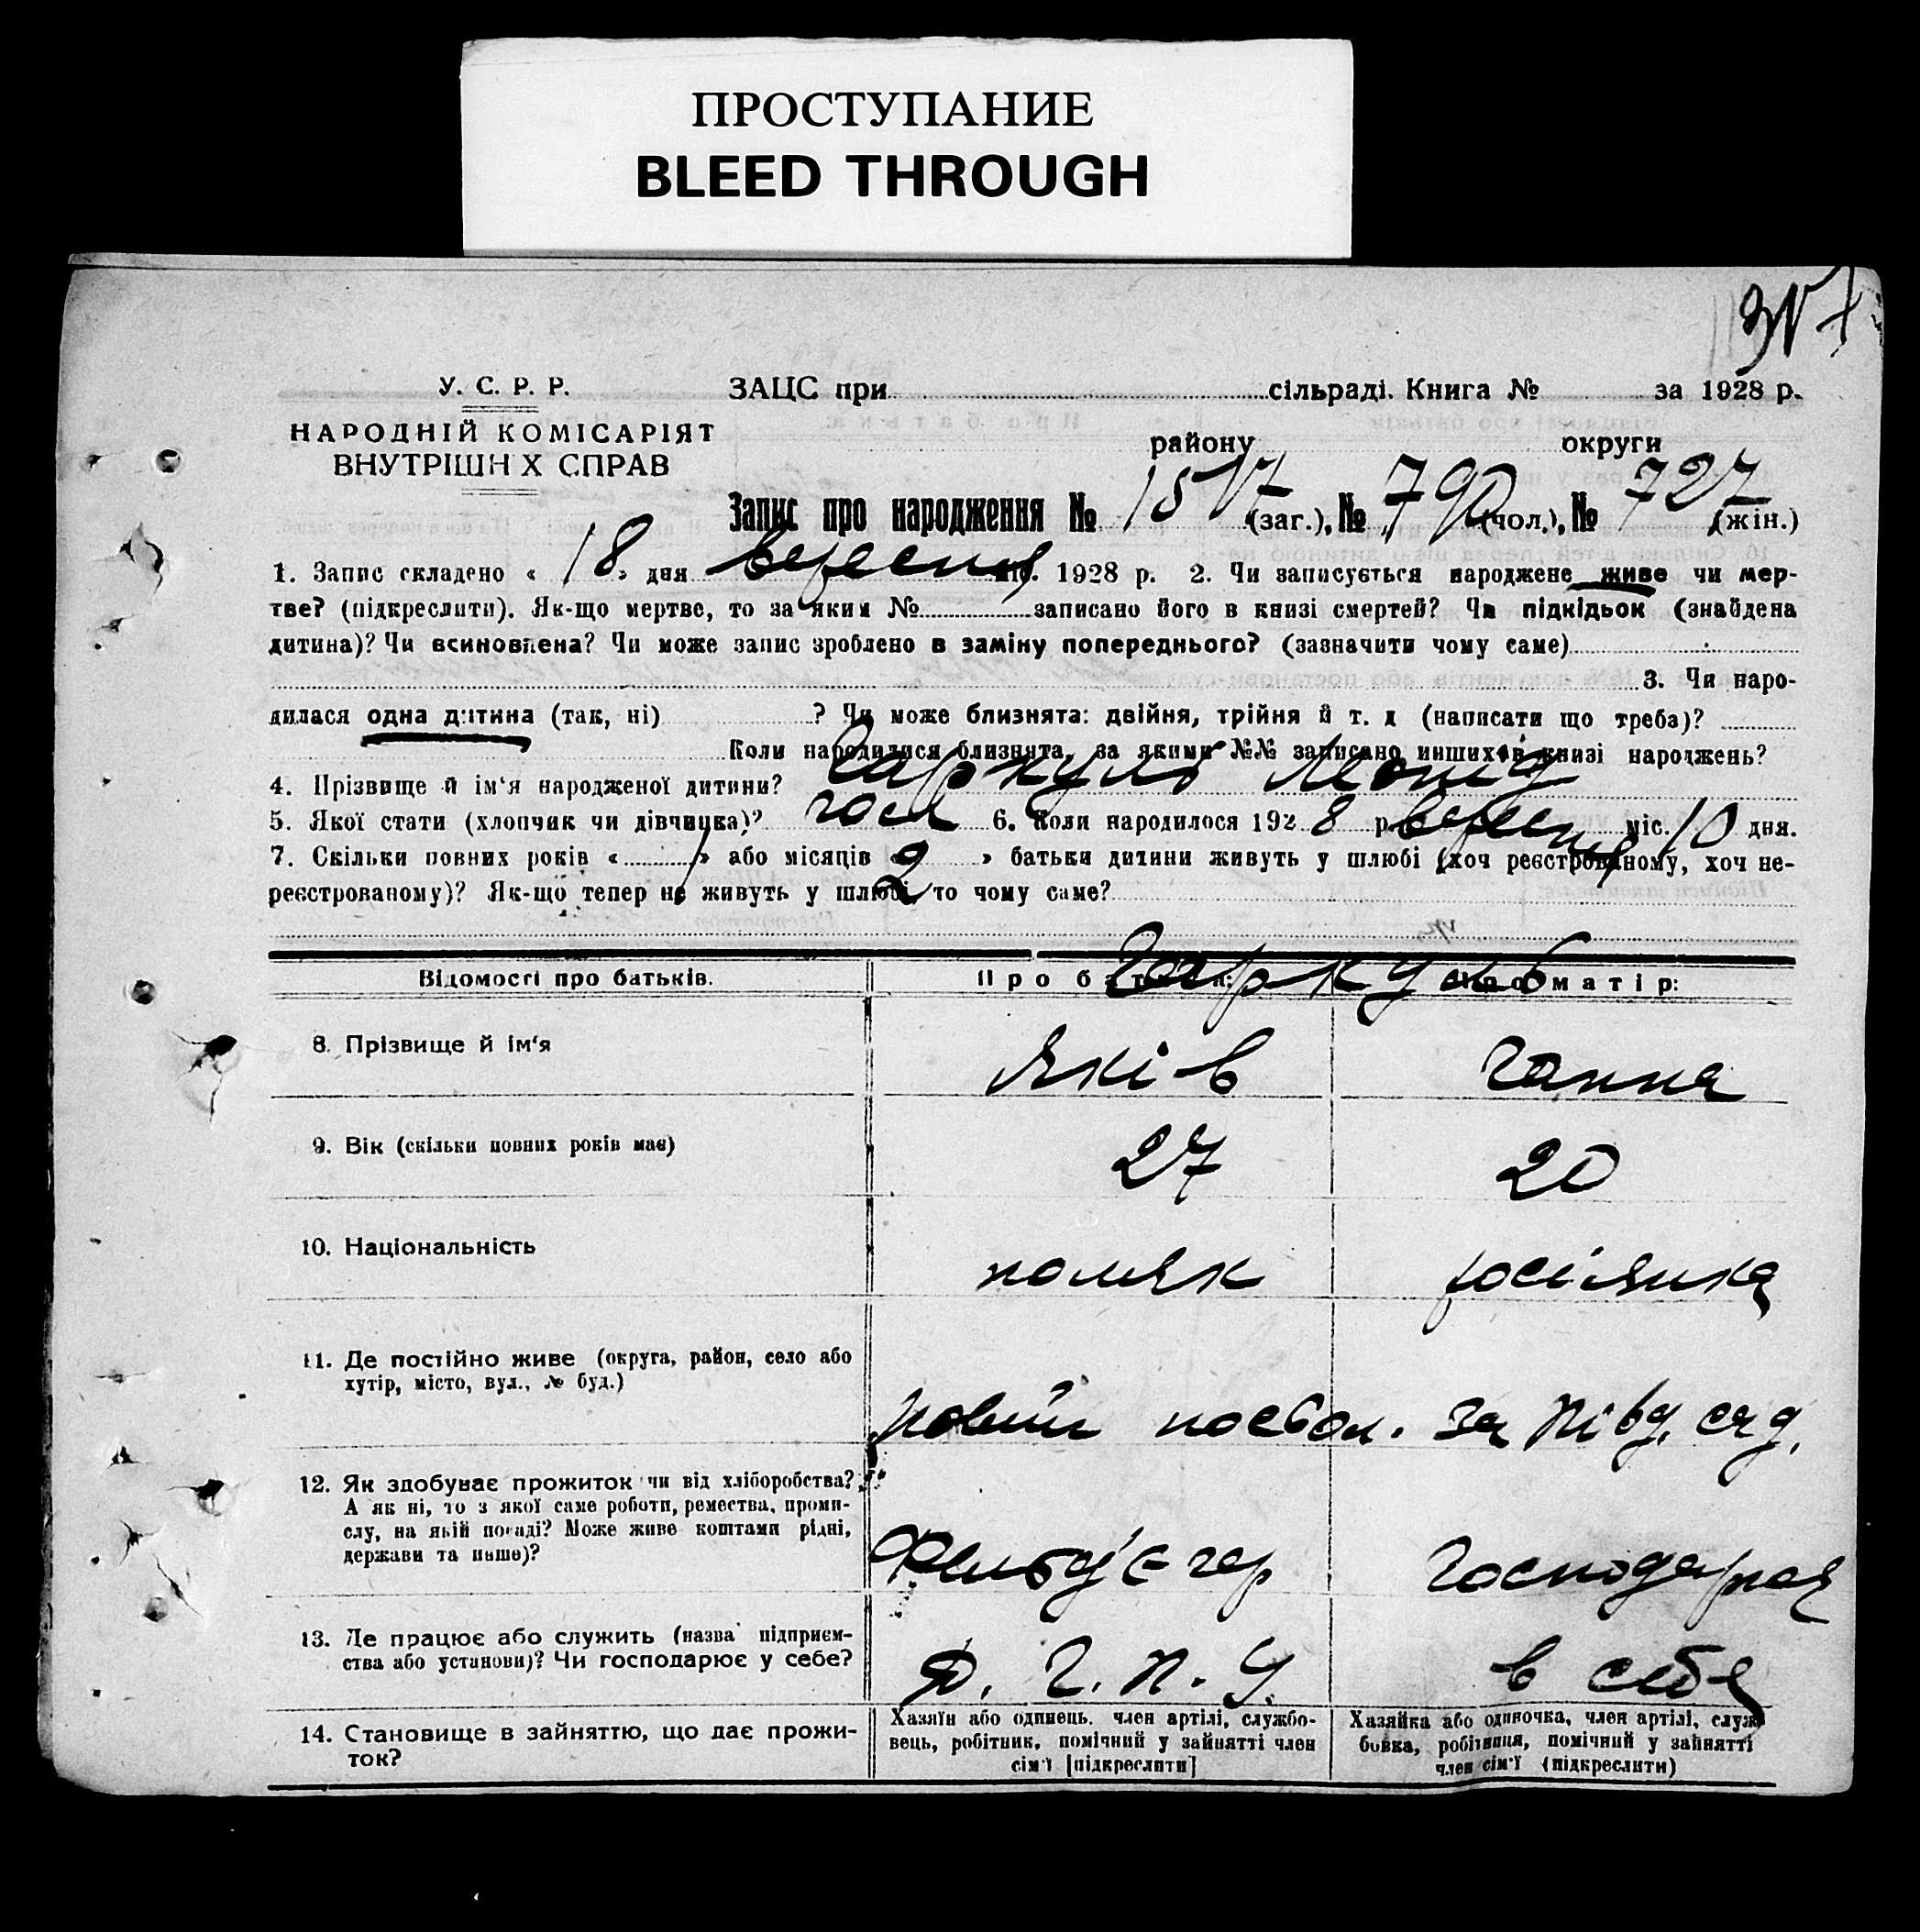 ПРОСТУПАНИЕ
BLEED THROUGH
У. С. Р. Р.
НАРОДНІЙ КОМІСАРІЯТ
ВНУТРІШН Х СПРАВ
ЗАЦС при сільраді. Книга № за 1928 р.
району округи
Запис про народження № 1517 (заг.), № 790 (чол.), № 727 (жін.)
1. Запис складено « 18 » дня вересня міс. 1928 р. 2. Чи записується народжене живе чи мер-
тве? (підкреслити). Як-що мертве, то за яким № записано його в книзі смертей? Чи підкідьок (знайдена
дитина)? Чи всиновлена? Чи може запис зроблено в заміну попереднього? (зазначити чому саме)
3. Чи наро-
дилася одна дитина (так, ні) ? Чи може близнята: двійня, трійня й т. д (написати що треба)?
Коли народилися близнята, за якими №№ записано инших в книзі народжень?
4. Прізвище й ім'я народженої дитини? Гаркуль
5. Якої стати (хлопчик чи дівчинка)? 6. Коли народилося 192 8 р. вересня міс. 10 дня.
7. Скільки повних років « 1 » або місяців « 2 » батьки дитини живуть у шлюбі (хоч реєстрованому, хоч не-
реєстрованому)? Як-що тепер не живуть у шлюбі, то чому саме?
Гаркуль
Відомості про батьків. Про батька: Про матір:
8. Прізвище й ім'я Яків Ганна
9. Вік (скільки повних років має) 27 20
10. Національність поляк росіянка
11. Де постійно живе (округа, район, село або
хутір, місто, вул., № буд.)
новий посьол. за Півд.
12. Як здобуває прожиток чи від хліборобства?
А як ні, то з якої саме роботи, ремества, проми-
слу, на якій посаді? Може живе коштами рідні,
держави та инше)?
Фельд'єгер Господарка
13. Де працює або служить (назва підприєм-
ства або установи)? Чи господарює у себе?
Д. Г. П. У. в себе
14. Становище в зайняттю, що дає прожи-
ток?
Хазяїн або одинець. член артілі, службо-
вець, робітник, помічний у зайнятті член
сім'ї [підкреслити]
Хазяйка або одиночка, член артілі, служ
бовка, робітниця, помічний у зайнятті
член сім'ї (підкреслити)